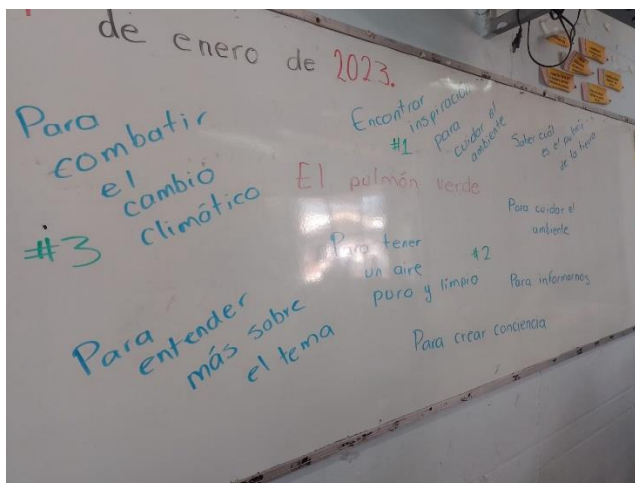 de enero de 2023.
Para
combatir
el
cambio
climático
#3
Encontrar
inspiración
para
cuidar el
ambiente
#1
Saber cuál
es el pulmón
de la tierra
El pulmón verde
Para tener
un aire
puro y limpio
#2
Para cuidar el
ambiente
Para informarnos
Para
entender
más sobre
el tema
Para crear conciencia